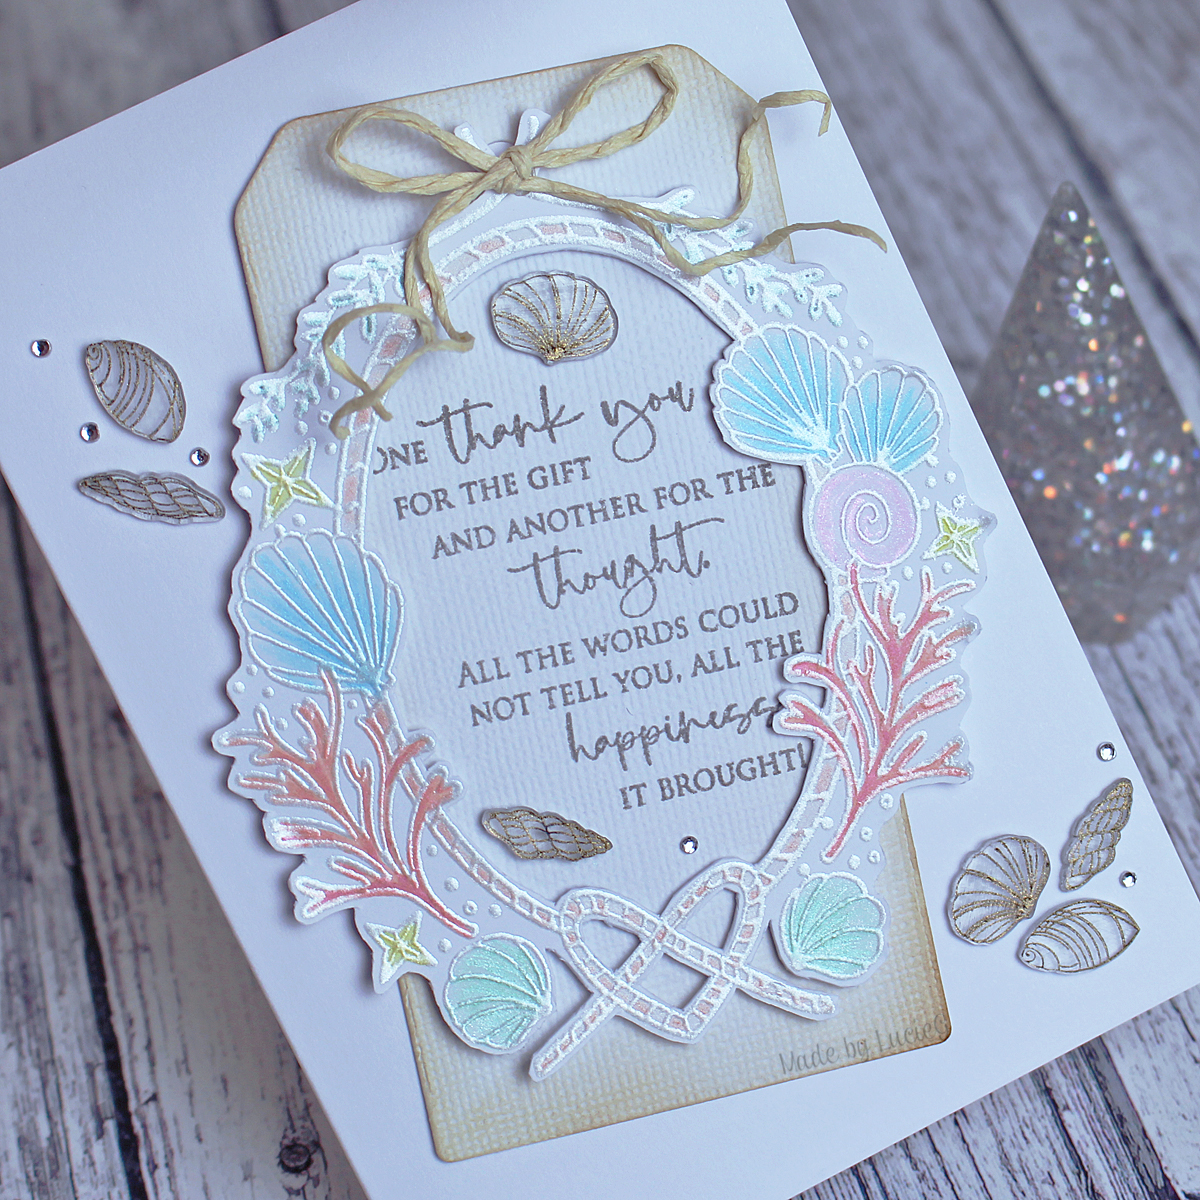 ONE thank you
FOR THE GIFT
AND ANOTHER FOR THE
thought.
ALL THE WORDS COULD
NOT TELL YOU, ALL THE
happiness
IT BROUGHT!
Made by